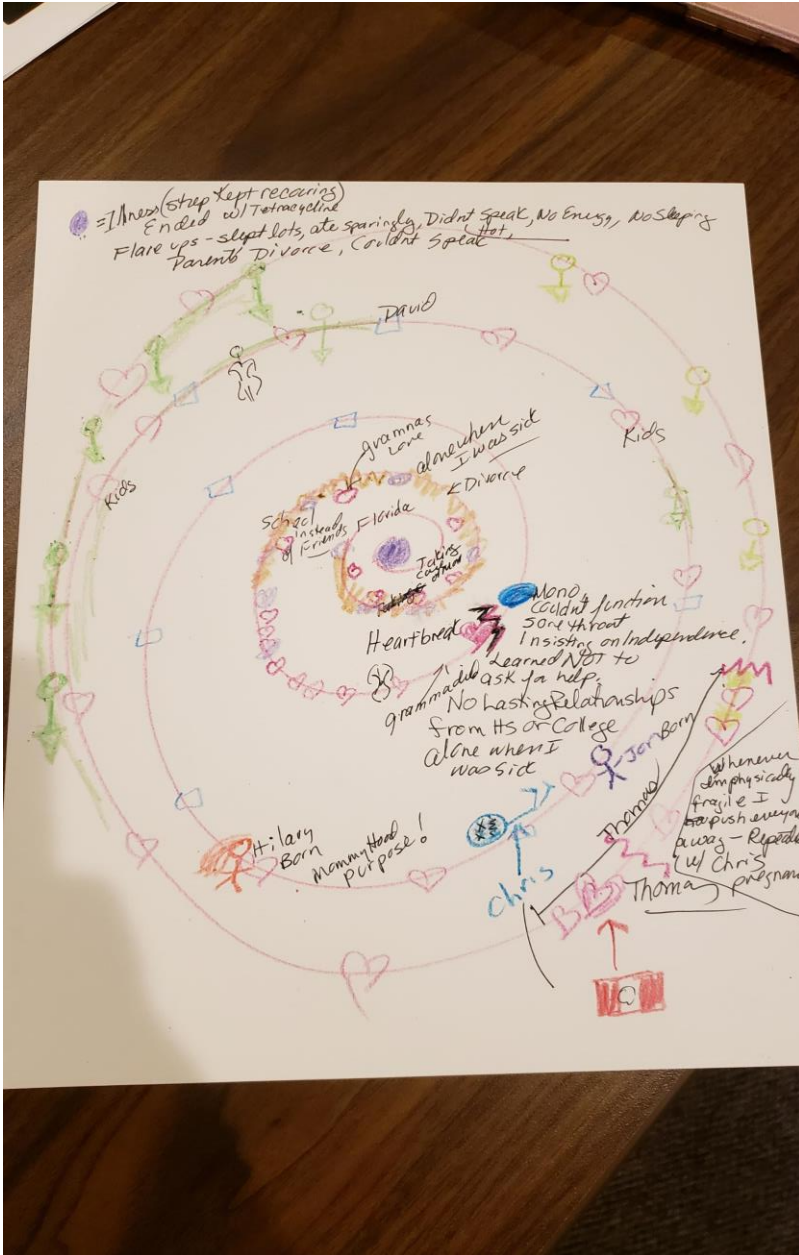 = Illness (strep kept recouring)
Ended w/ Tetracycline
Flare ups - slept lots, ate sparingly, Didnt speak, No Energy, No Sleeping
Hot,
Parents Divorce, Couldnt Speak
David
Kids
Kids
grammas
Love
alone when
I was sick
< Divorce
School
instead
of Friends
Florida
Taking
Heartbreak
Mono
Couldnt function
Sore throat
Insisting on Independence.
Learned NOT to
ask for help.
gramma died
No Lasting Relationships
from HS or College
alone when I
was sick
Jon Born
Hilary
Born
Mommy Hood
purpose!
Chris
Thomas
Thomas
Whenever
I'm physically
fragile I
push everyone
away - Repeated
w/ Chris
pregnan